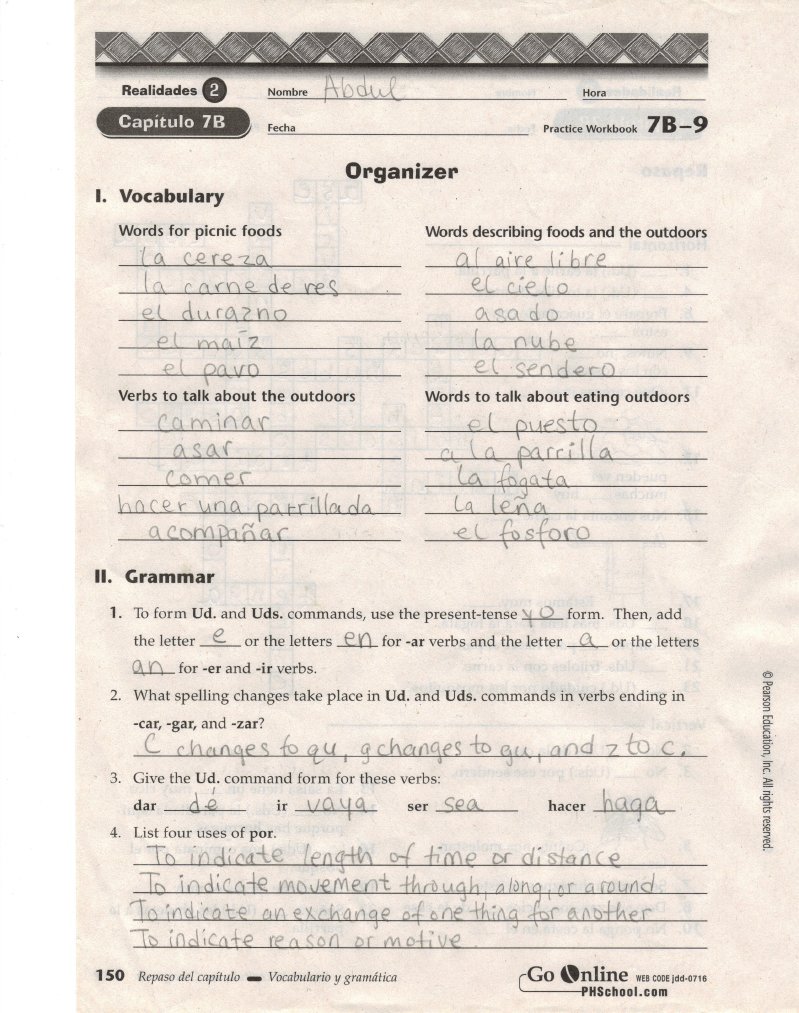 Realidades 2
Nombre Abdul Hora
Capítulo 7B
Fecha Practice Workbook 7B–9
Organizer
I. Vocabulary
Words for picnic foods
la cereza
la carne de res
el durazno
el maíz
el pavo
Words describing foods and the outdoors
al aire libre
el cielo
asado
la nube
el sendero
Verbs to talk about the outdoors
caminar
asar
comer
hacer una parrillada
acompañar
Words to talk about eating outdoors
el puesto
a la parrilla
la fogata
la leña
el fosforo
II. Grammar
1. To form Ud. and Uds. commands, use the present-tense yo form. Then, add
the letter e or the letters en for -ar verbs and the letter a or the letters
an for -er and -ir verbs.
2. What spelling changes take place in Ud. and Uds. commands in verbs ending in
-car, -gar, and -zar?
C changes to qu, g changes to gu, and z to c.
3. Give the Ud. command form for these verbs:
dar dé ir vaya ser sea hacer haga
4. List four uses of por.
To indicate length of time or distance
To indicate movement through, along, or around
To indicate an exchange of one thing for another
To indicate reason or motive
150 Repaso del capítulo — Vocabulario y gramática
Go Online WEB CODE jdd-0716
PHSchool.com
© Pearson Education, Inc. All rights reserved.